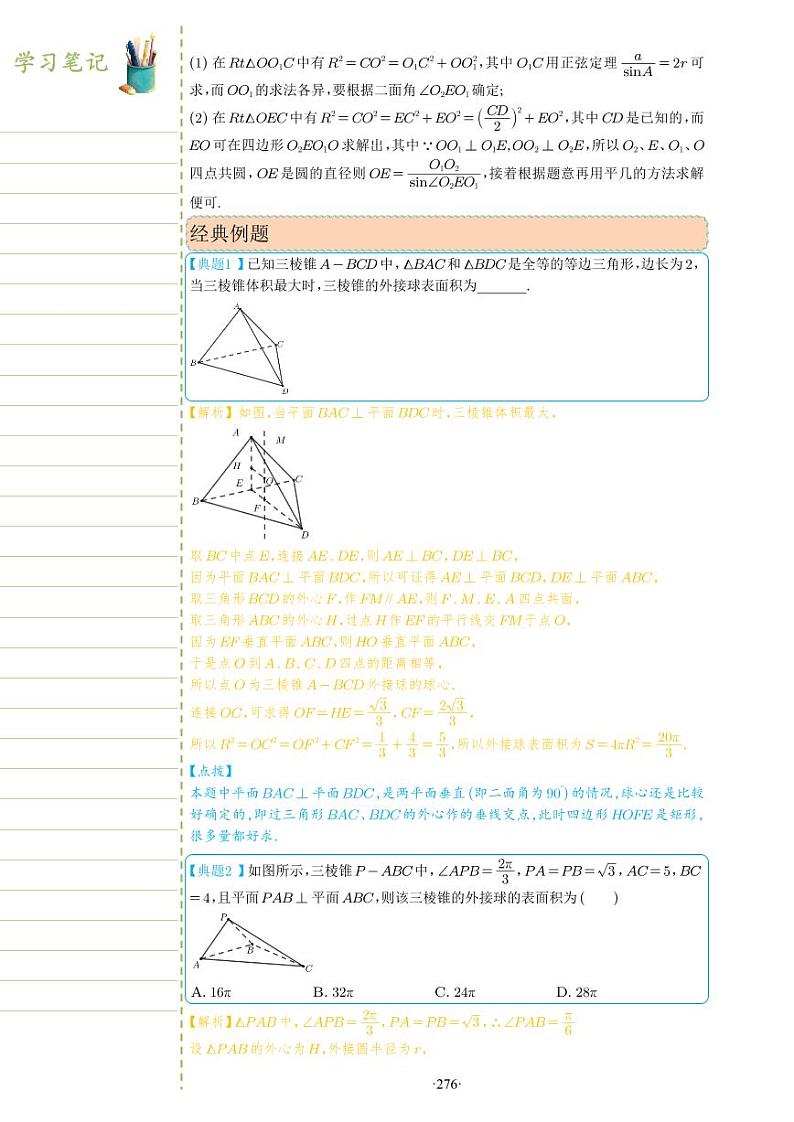 学习笔记
(1) 在Rt△OO₁C中有R²=CO²=O₁C²+OO₁²,其中O₁C用正弦定理 a/sinA=2r可
求,而OO₁的求法各异,要根据二面角∠O₂EO₁确定;
(2) 在Rt△OEC中有R²=CO²=EC²+EO²=(CD/2)²+EO²,其中CD是已知的,而
EO可在四边形O₂EO₁O求解出,其中∵OO₁⊥O₁E,OO₂⊥O₂E,所以O₂、E、O₁、O
四点共圆,OE是圆的直径则OE=O₁O₂/sin∠O₂EO₁,接着根据题意再用平几的方法求解
便可.
经典例题
【典题1】已知三棱锥A-BCD中,△BAC和△BDC是全等的等边三角形,边长为2,
当三棱锥体积最大时,三棱锥的外接球表面积为_______.
A
B
C
D
【解析】如图,当平面BAC⊥平面BDC时,三棱锥体积最大,
A
M
H
E
O
C
B
F
D
取BC中点E,连接AE、DE,则AE⊥BC,DE⊥BC,
因为平面BAC⊥平面BDC,所以可证得AE⊥平面BCD,DE⊥平面ABC,
取三角形BCD的外心F,作FM∥AE,则F、M、E、A四点共面,
取三角形ABC的外心H,过点H作EF的平行线交FM于点O,
因为EF垂直平面ABC,则HO垂直平面ABC,
于是点O到A、B、C、D四点的距离相等,
所以点O为三棱锥A-BCD外接球的球心.
连接OC,可求得OF=HE=√3/3,CF=2√3/3,
所以R²=OC²=OF²+CF²=1/3+4/3=5/3,所以外接球表面积为S=4πR²=20π/3.
【点拨】
本题中平面BAC⊥平面BDC,是两平面垂直(即二面角为90°)的情况,球心还是比较
好确定的,即过三角形BAC、BDC的外心作的垂线交点,此时四边形HOFE是矩形,
很多量都好求.
【典题2】如图所示,三棱锥P-ABC中,∠APB=2π/3,PA=PB=√3,AC=5,BC
=4,且平面PAB⊥平面ABC,则该三棱锥的外接球的表面积为(  )
P
B
A
C
A. 16π B. 32π C. 24π D. 28π
【解析】△PAB中,∠APB=2π/3,PA=PB=√3,∴∠PAB=π/6
设△PAB的外心为H,外接圆半径为r,
·276·